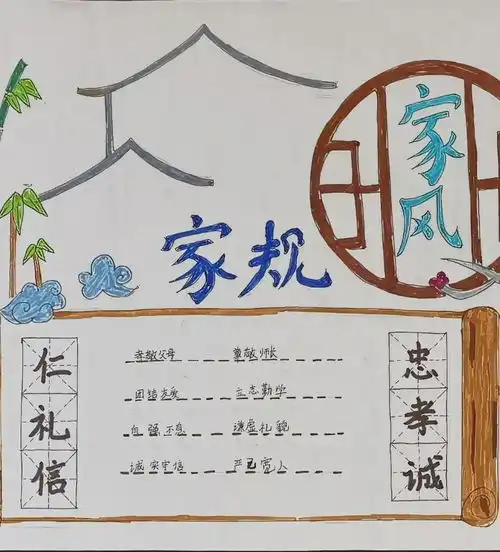 家风
家规
仁礼信
孝敬父母 尊敬师长
团结友爱 立志勤学
自强不息 谦虚礼貌
诚实守信 严己宽人
忠孝诚